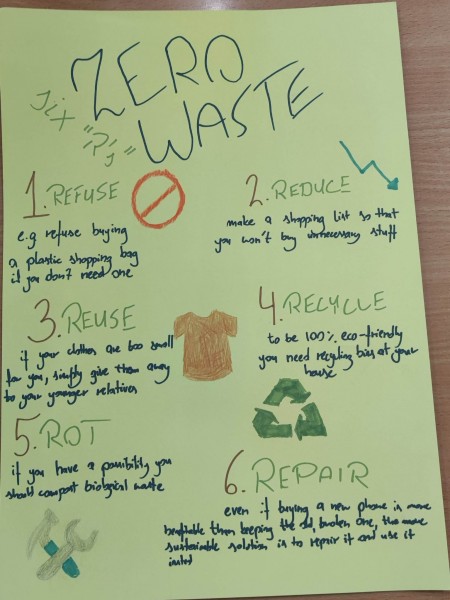 ZERO
WASTE
Six "R's"
1. REFUSE
e.g refuse buying
a plastic shopping bag
if you don't need one
2. REDUCE
make a shopping list so that
you won't buy unnecessary stuff
3. REUSE
if your clothes are too small
for you, simply give them away
to your younger relatives
4. RECYCLE
to be 100% eco-friendly
you need recycling bins at your
house
5. ROT
if you have a possibility you
should compost biological waste
6. REPAIR
even if buying a new phone is more
benefitable than keeping the old, broken one, the more
sustainable solution is to repair it and use it